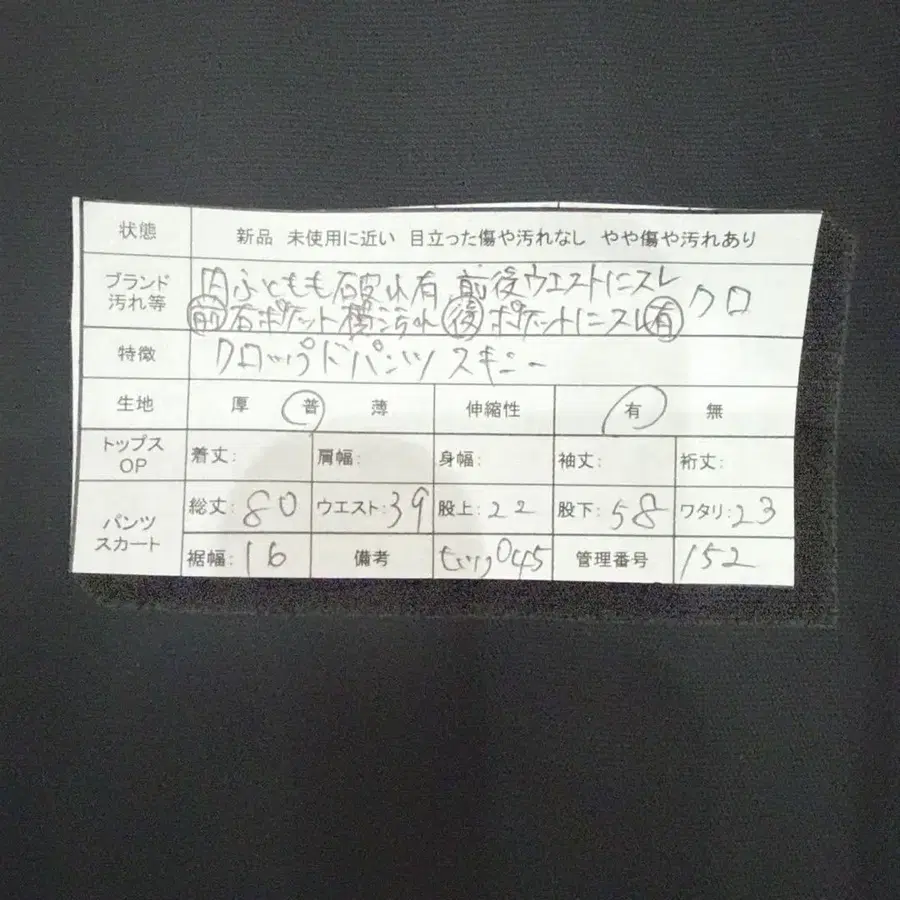 状態 新品 未使用に近い 目立った傷や汚れなし やや傷や汚れあり
ブランド汚れ等 内ふともも破れ有 前後ウエストにスレ クロ
前右ポケット横汚れ 後ポケットにスレ有
特徴 クロップドパンツ スキニー
生地 厚 普 薄 伸縮性 有 無
トップス OP 着丈: 肩幅: 身幅: 袖丈: 裄丈:
パンツ スカート 総丈: 80 ウエスト: 39 股上: 22 股下: 58 ワタリ: 23
裾幅: 16 備考 ヒップ045 管理番号 152